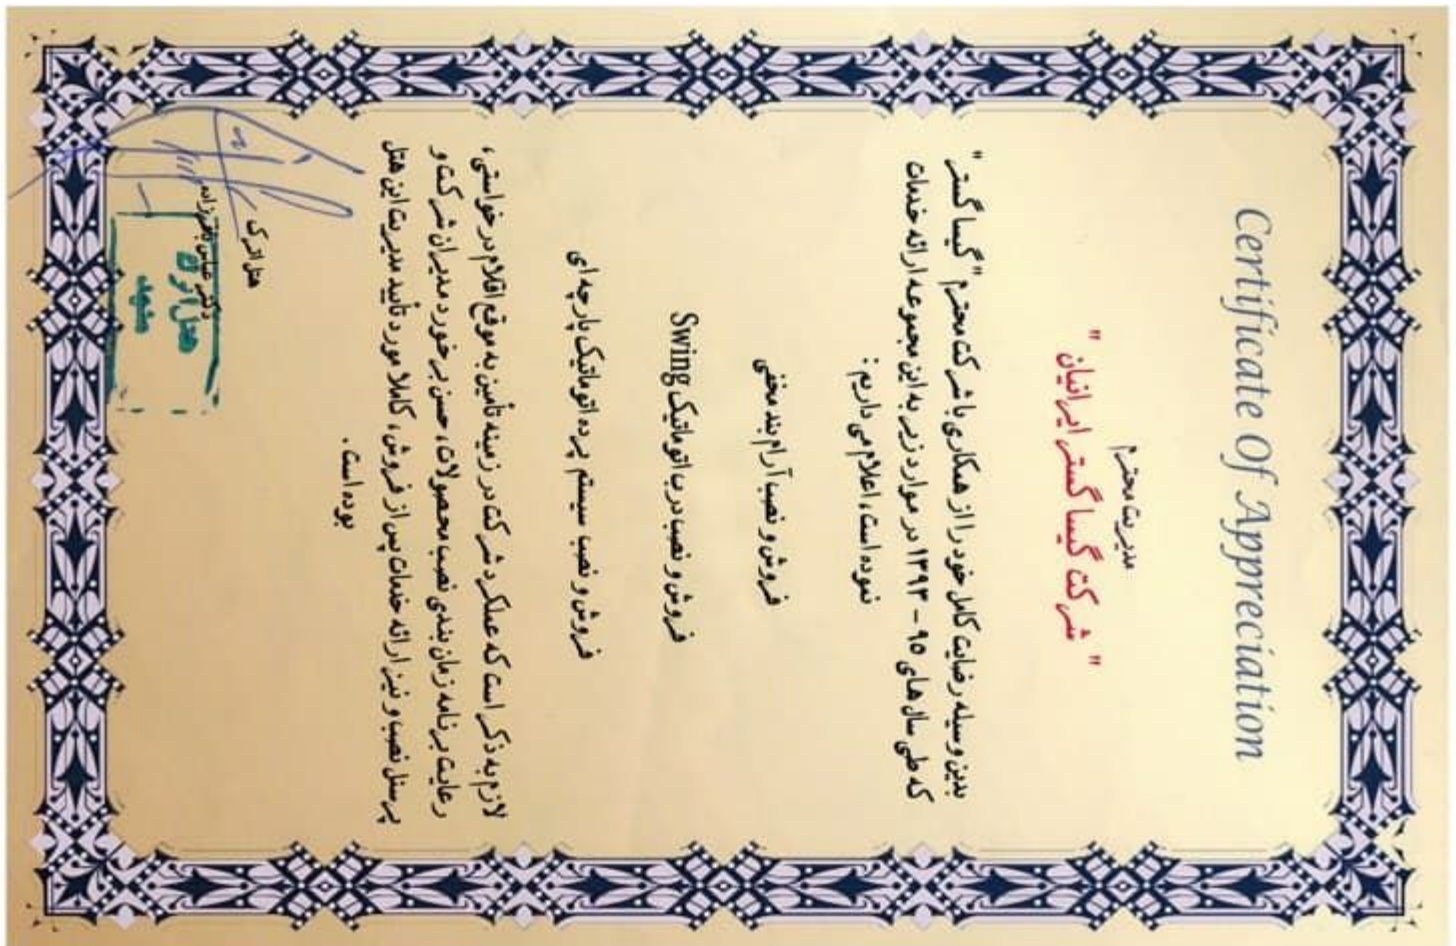 Certificate Of Appreciation
مدیریت محترم
" شرکت گیسا گستر ایرانیان "
بدین وسیله رضایت کامل خود را از همکاری با شرکت محترم " گیسا گستر "
که طی سال های ۹۵ - ۱۳۹۳ در موارد زیر به این مجموعه ارائه خدمات
نموده است، اعلام می داریم :
فروش و نصب آرام بند مخفی
فروش و نصب درب اتوماتیک Swing
فروش و نصب سیستم پرده اتوماتیک پارچه ای
لازم به ذکر است که عملکرد شرکت در زمینه تأمین به موقع اقلام درخواستی ،
رعایت برنامه زمان بندی نصب محصولات، حسن برخورد مدیران شرکت و
پرسنل نصب و نیز ارائه خدمات پس از فروش، کاملا مورد تأیید مدیریت این هتل
بوده است .
هتل اترک
دکتر عباس باقرزاده
هتل اترک
مشهد